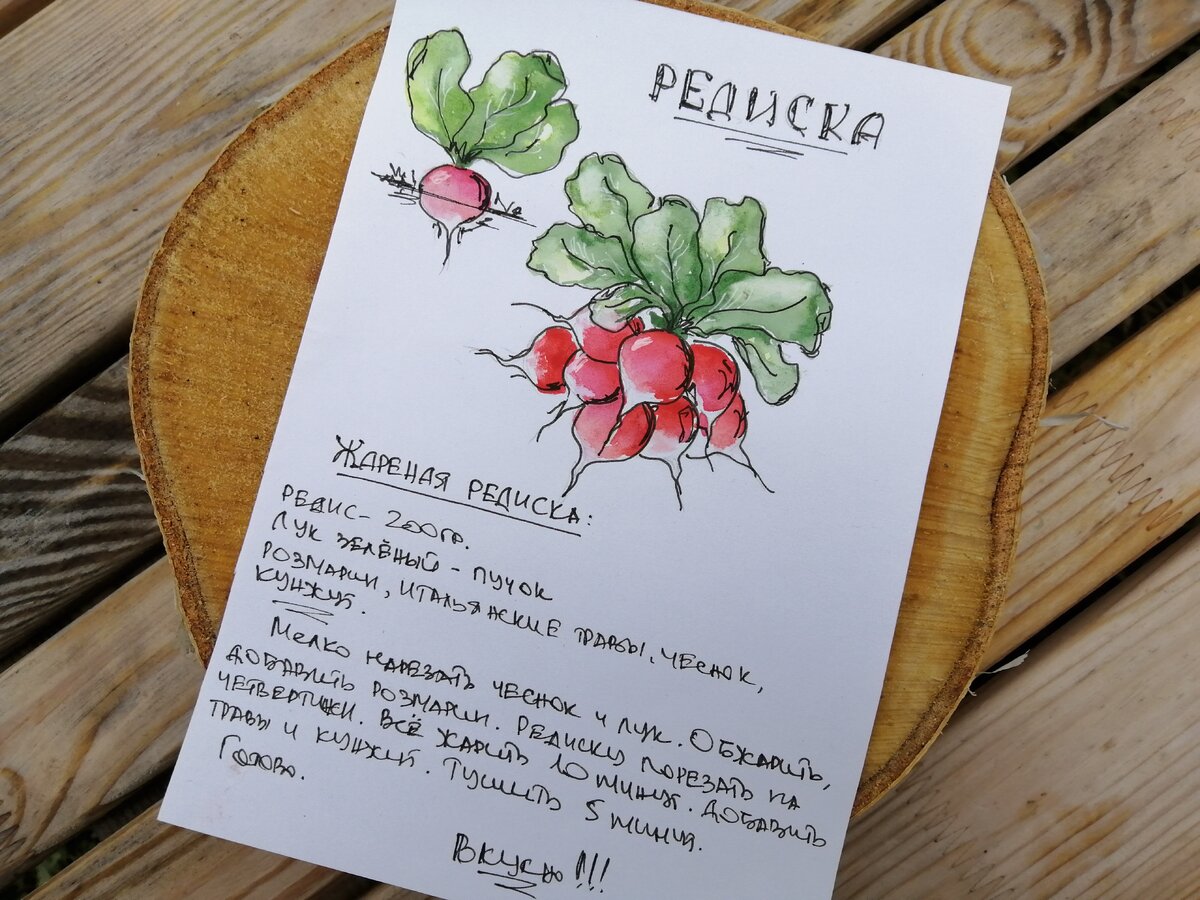 РЕДИСКА
ЖАРЕНАЯ РЕДИСКА:
РЕДИС - 200гр.
ЛУК ЗЕЛЁНЫЙ - ПУЧОК
РОЗМАРИН, ИТАЛЬЯНСКИЕ ТРАВЫ, ЧЕСНОК,
КУНЖУТ.
Мелко НАРЕЗАТЬ ЧЕСНОК И ЛУК. ОБЖАРИТЬ,
ДОБАВИТЬ РОЗМАРИН. РЕДИСКУ ПОРЕЗАТЬ НА
ЧЕТВЕРТИНКИ. ВСЁ ЖАРИТЬ 10 МИНУТ. ДОБАВИТЬ
ТРАВЫ И КУНЖУТ. ТУШИТЬ 5 МИНУТ.
Готово.
Вкусно!!!